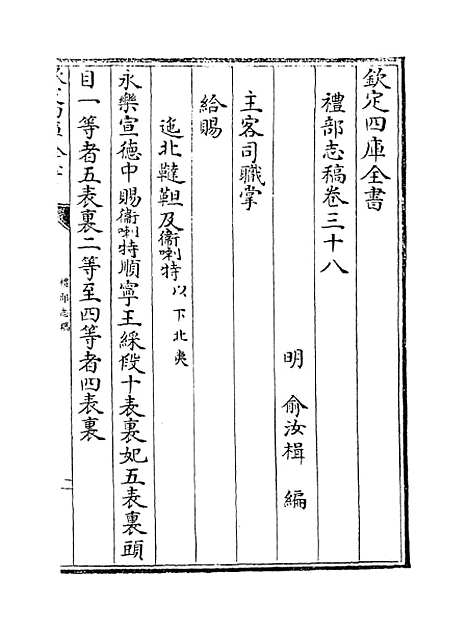 欽定四庫全書
禮部志稿卷三十八
明 俞汝楫 編
主客司職掌
給賜
迤北韃靼及衛喇特以下北夷
永樂宣德中賜衛喇特順寧王綵段十表裏妃五表裏頭
目一等者五表裏二等至四等者四表裏
禮部志稿